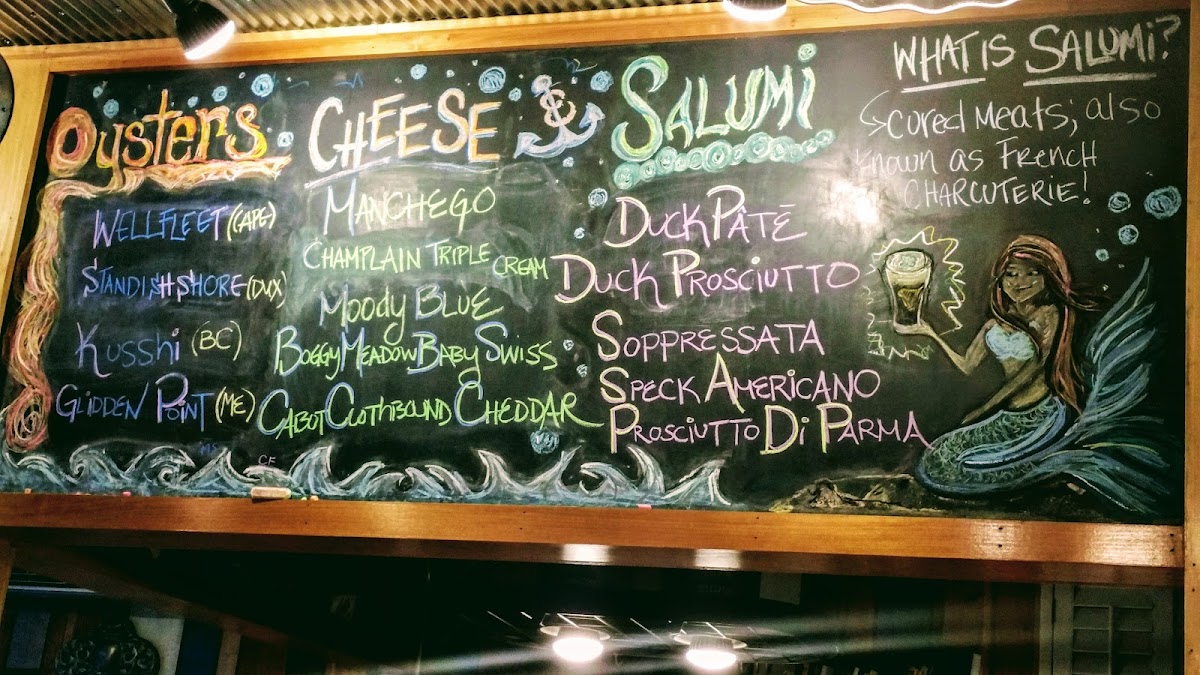 Oysters
WELLFLEET (CAPE)
STANDISH SHORE (DUX)
KUSSHI (BC)
GLIDDEN POINT (ME)
CHEESE &
MANCHEGO
CHAMPLAIN TRIPLE CREAM
MOODY BLUE
BOGGY MEADOW BABY SWISS
CABOT CLOTHBOUND CHEDDAR
SALUMI
DUCK PÂTÉ
DUCK PROSCIUTTO
SOPPRESSATA
SPECK AMERICANO
PROSCIUTTO DI PARMA
WHAT IS SALUMI?
CURED MEATS; also
KNOWN as FRENCH
CHARCUTERIE!